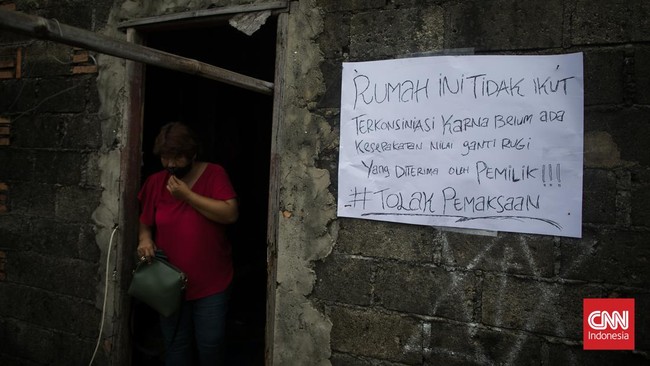 RUMAH INI TIDAK IKUT
TERKONSINIASI KARNA BELUM ADA
KESEPAKATAN NILAI GANTI RUGI
YANG DITERIMA OLEH PEMILIK !!!
# TOLAK PEMAKSAAN
CNN
Indonesia